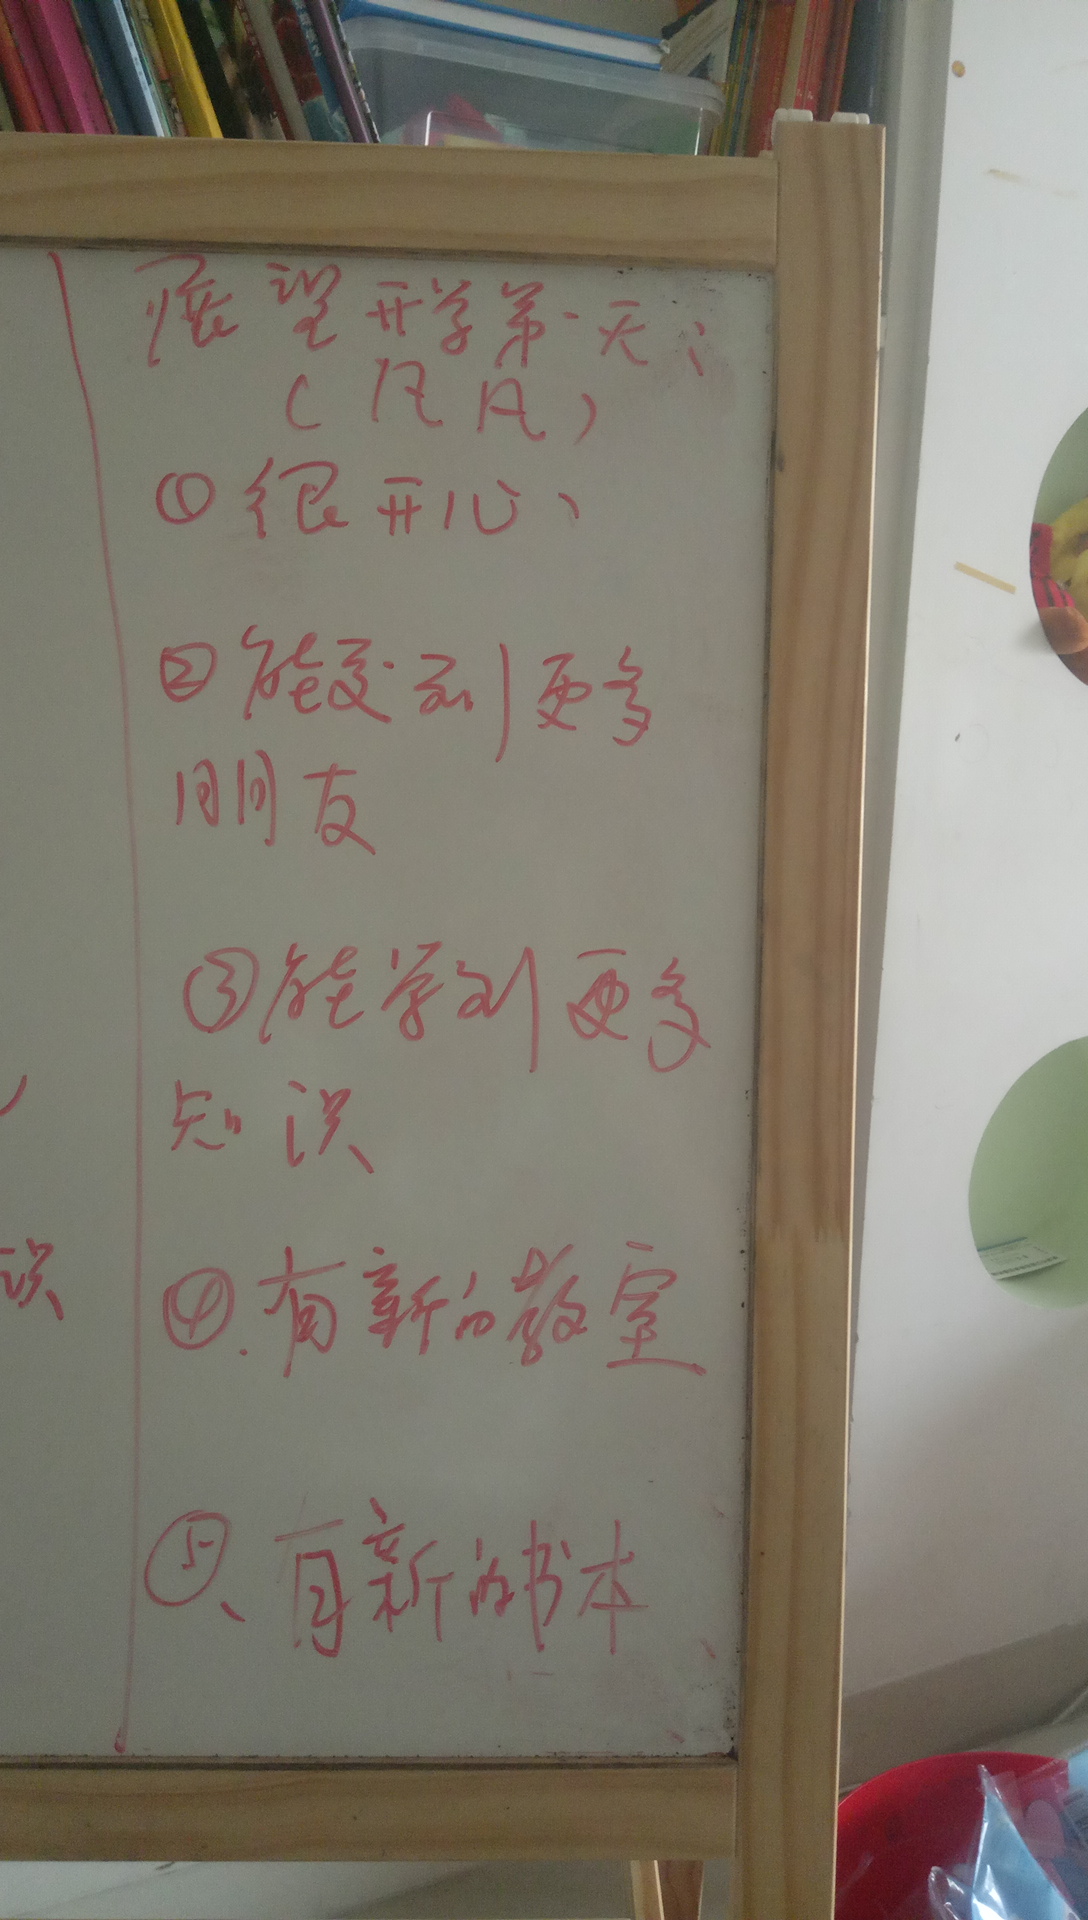 展望开学第一天:
(凡凡)
①很开心、
②能交到更多
朋友
③能学到更多
知识
识
④.有新的教室
⑤、有新的书本